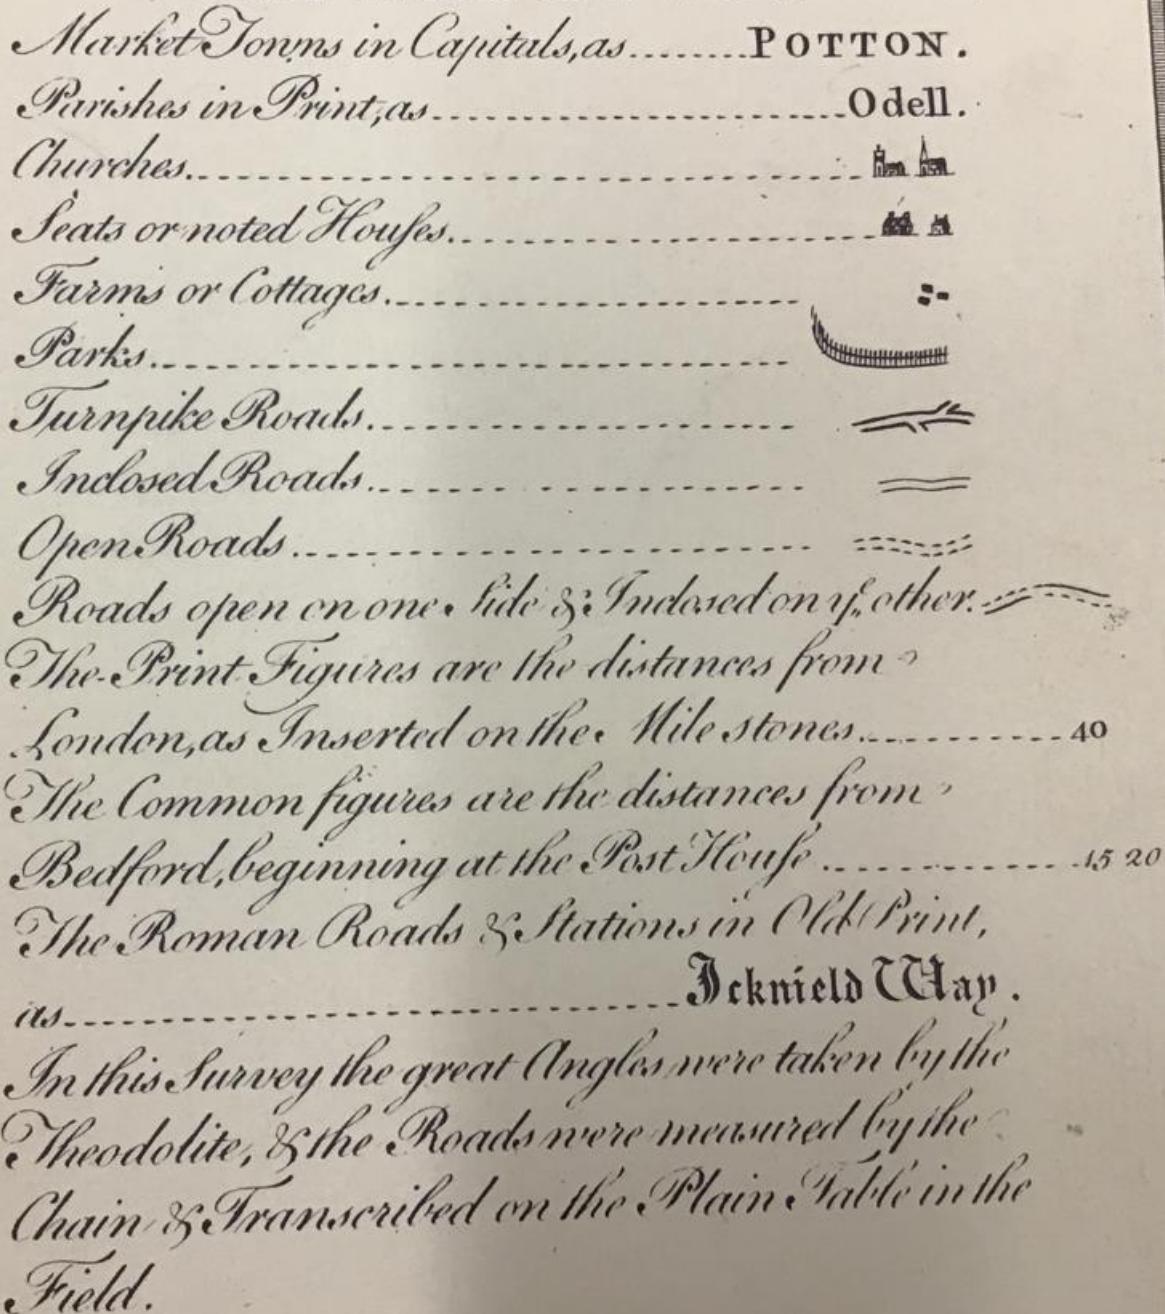 Market Towns in Capitals, as........POTTON.
Parishes in Print, as..............................Odell.
Churches..............................
Seats or noted Houſes..............................
Farms or Cottages..............................
Parks..............................
Turnpike Roads..............................
Inclosed Roads..............................
Open Roads..............................
Roads open on one Side & Inclosed on yᵉ other.
The Print Figures are the distances from
London, as Inserted on the Mile stones..............40
The Common figures are the distances from
Bedford, beginning at the Post Houſe..............15 20
The Roman Roads & Stations in Old Print,
as..............................Icknield Way.
In this Survey the great Angles were taken by the
Theodolite, & the Roads were measured by the
Chain & Transcribed on the Plain Table in the
Field.